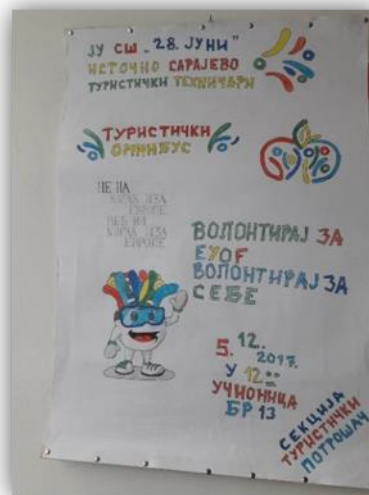 ЈУ СШ „28. ЈУНИ"
ИСТОЧНО САРАЈЕВО
ТУРИСТИЧКИ ТЕХНИЧАРИ
ТУРИСТИЧКИ
ОМНИБУС
НЕ НА
КРАЈ ИЗА
ЕВРОПЕ
ВЕЋ НА
ЕВРОПЕ
ВОЛОНТИРАЈ ЗА
EYOF
ВОЛОНТИРАЈ ЗА
СЕБЕ
5. 12. 2017.
У 12⁰⁰
УЧИОНИЦА
БР 13
СЕКЦИЈА
ТУРИСТИЧКИ
ПОТРОШАЧ